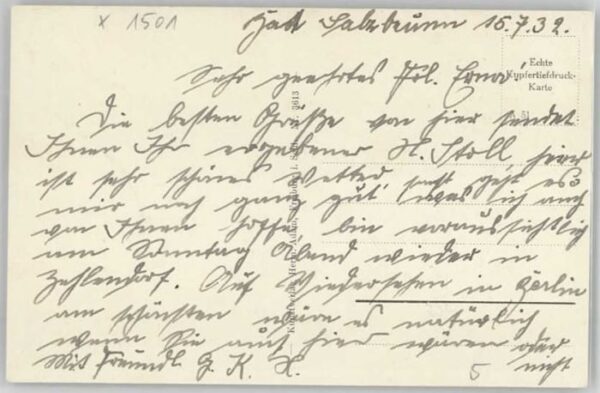 x 1501
Bad Salzbrunn 15.7.32.
Echte
Kupfertiefdruck-
Karte
Sehr geehrtes Frl. Erna!
Die besten Grüße von hier sendet
Ihnen Ihr ergebener H. Stoll, hier
ist sehr schönes Wetter, sonst geht es
mir noch ganz gut, was ich auch
von Ihnen hoffe, bin voraussichtlich
am Sonntag Abend wieder in
Zehlendorf. Auf Wiedersehen in Berlin
am schönsten wäre es natürlich
wenn Sie auch hier wären oder
nicht
Mit freundl. G. K. H.
5